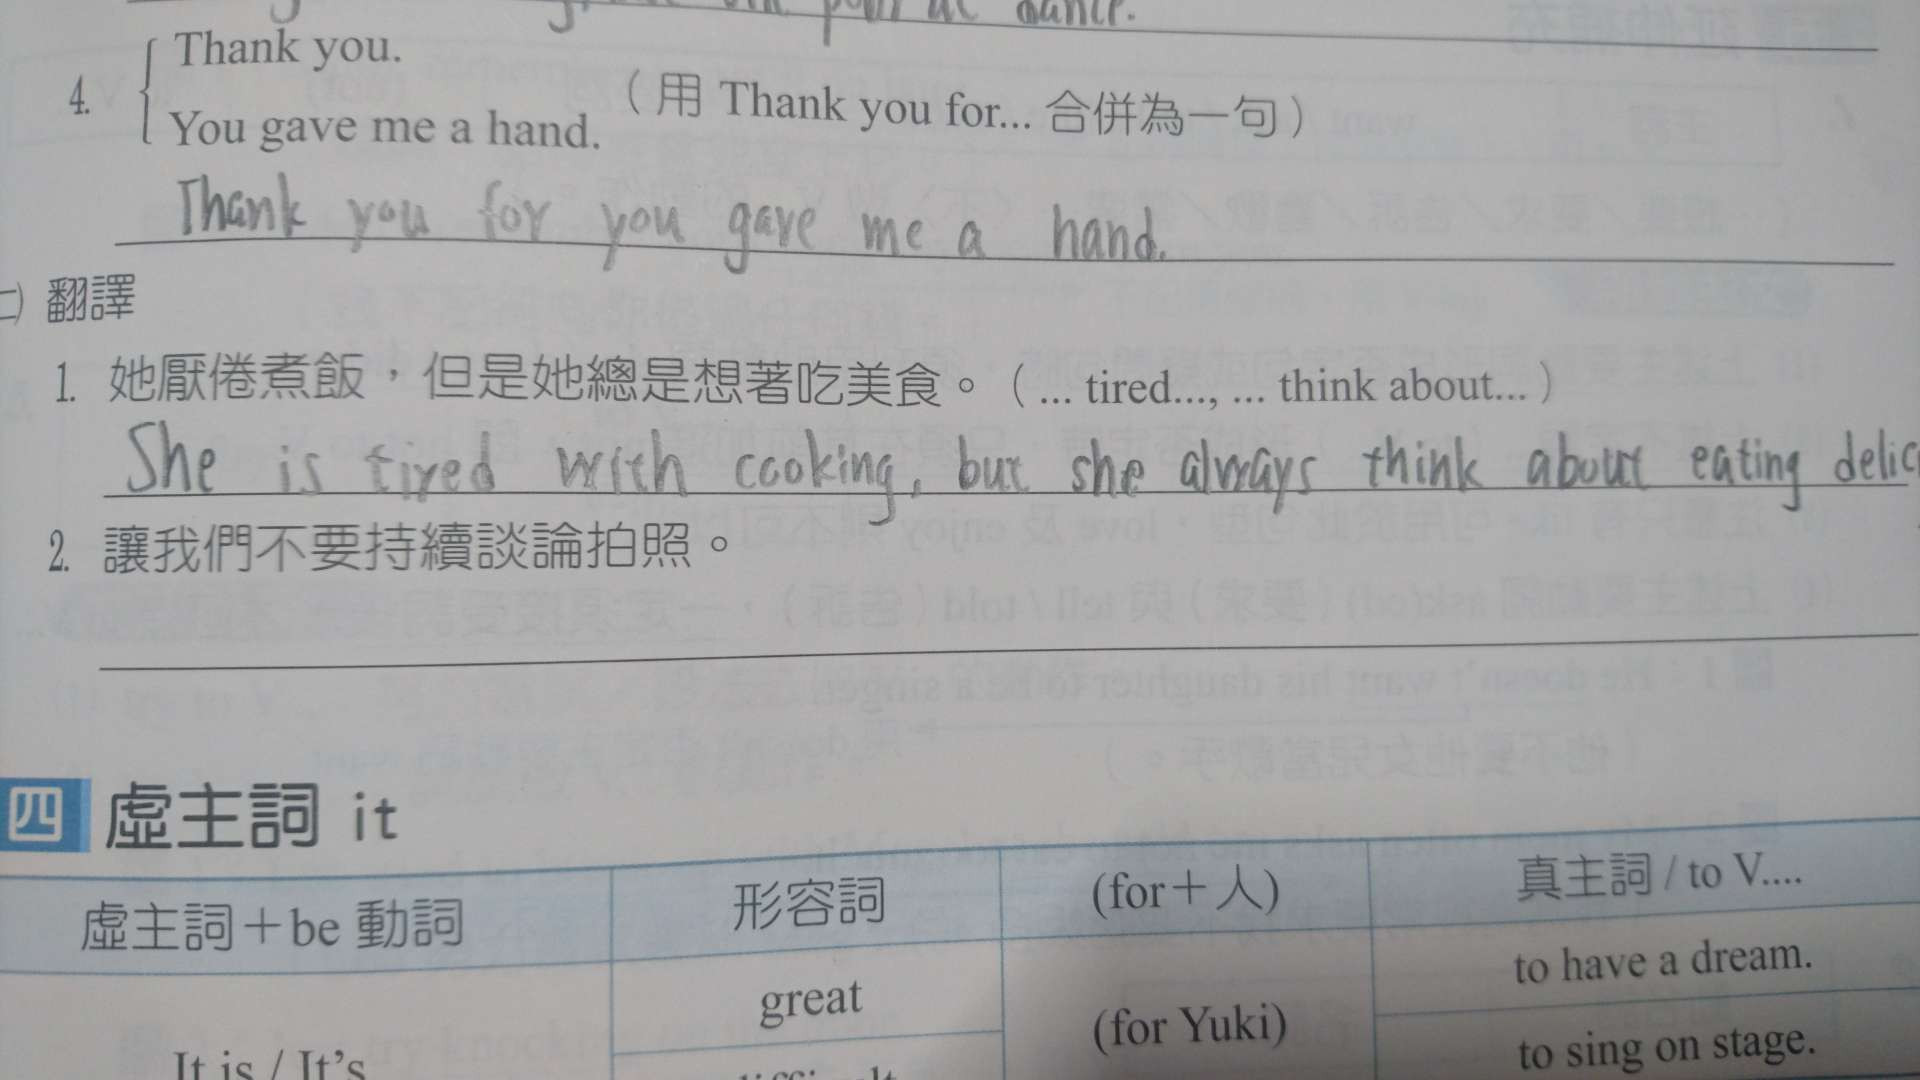 dance.
4. Thank you.
You gave me a hand.
(用 Thank you for... 合併為一句)
Thank you for you gave me a hand.
二) 翻譯
1. 她厭倦煮飯，但是她總是想著吃美食。(... tired..., ... think about...)
She is tired with cooking, but she always think about eating delic
2. 讓我們不要持續談論拍照。
四 虛主詞 it
虛主詞＋be 動詞 形容詞 (for＋人) 真主詞 / to V....
great to have a dream.
It is / It's (for Yuki) to sing on stage.